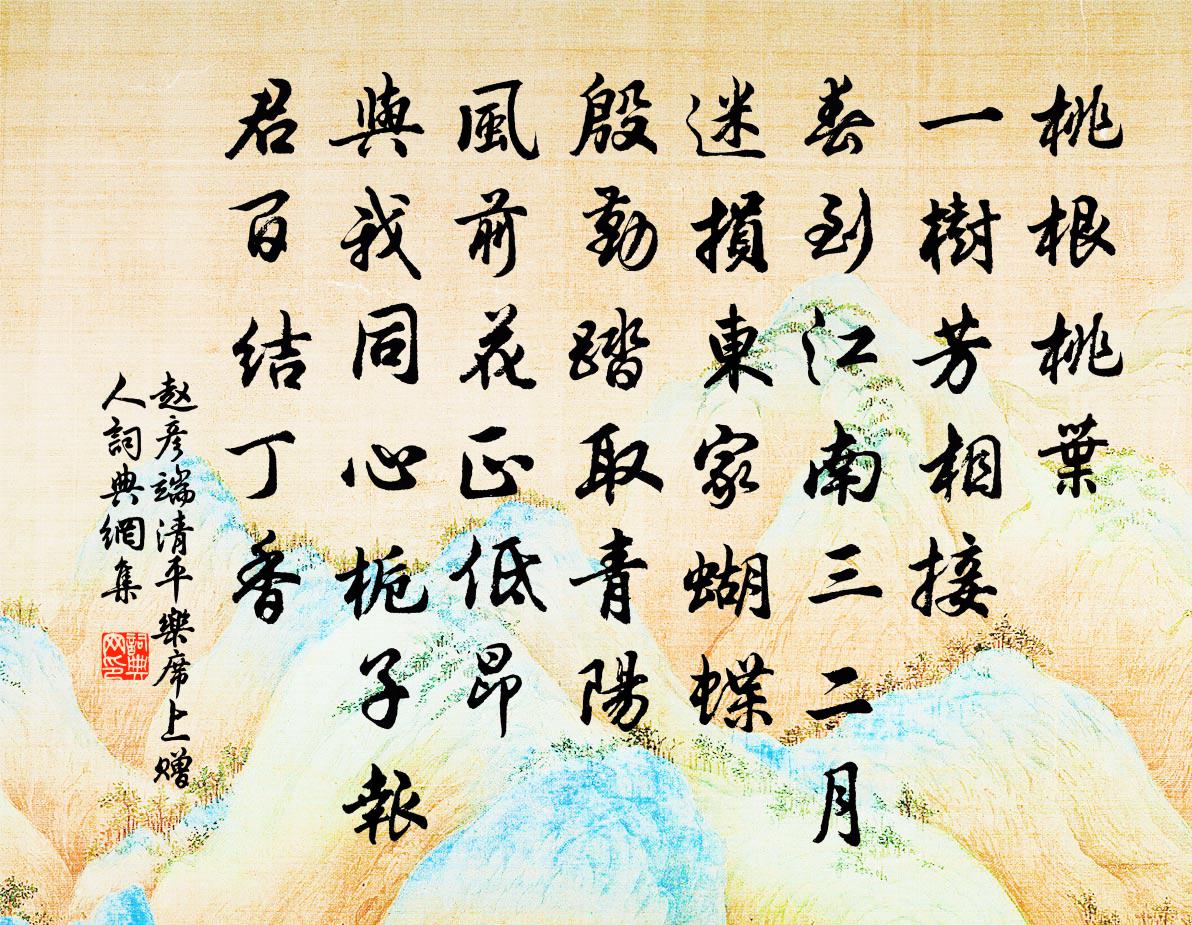 桃根桃葉
一樹芳相接
春到江南三二月
迷損東家蝴蝶
殷勤踏取青陽
風前花正低昂
與我同心栀子報
君百結丁香
赵彦端清平樂席上赠
人詞典網集
詞典网印